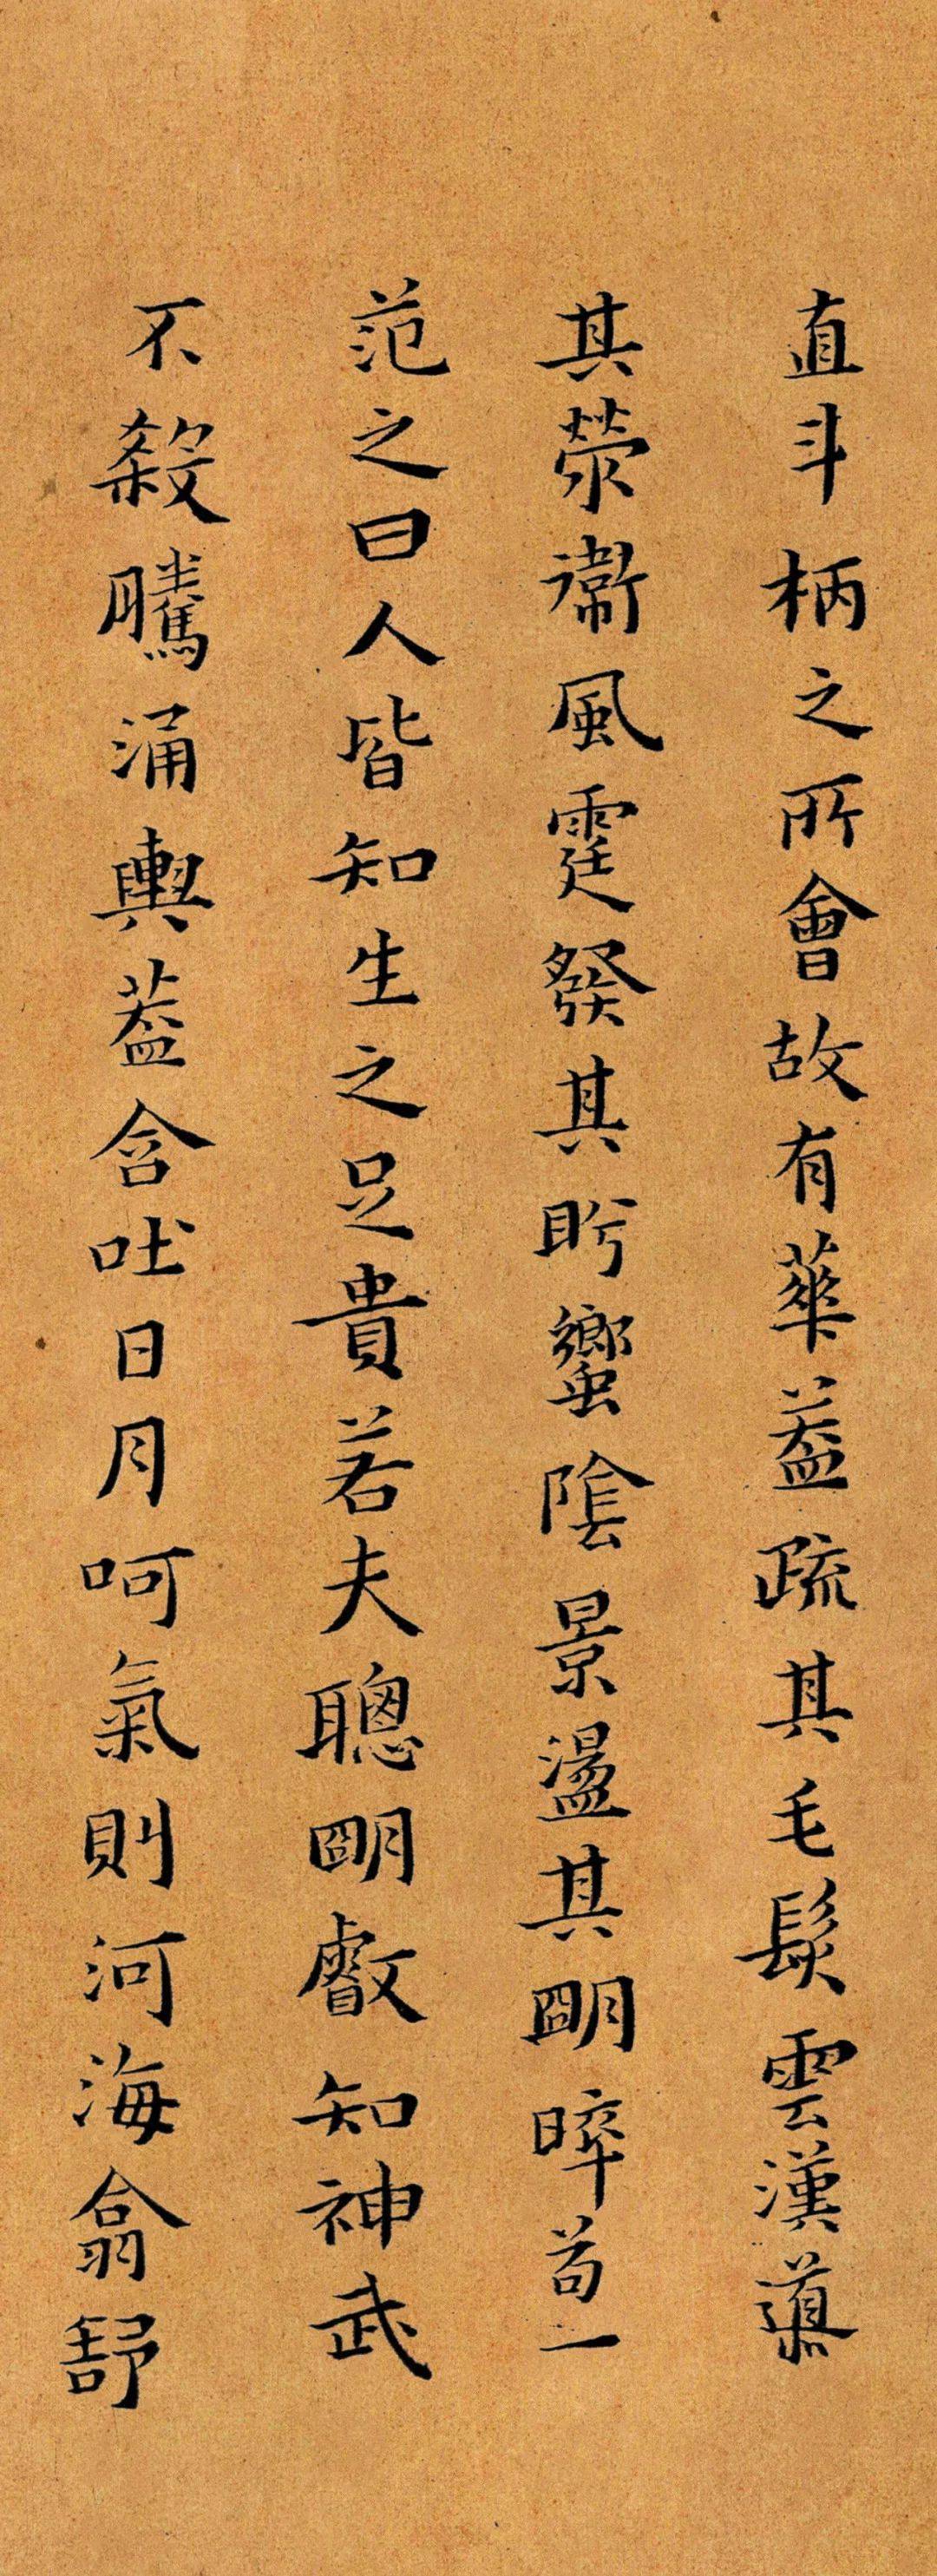 直斗柄之所會故有華蓋疏其毛髮雲漢導
其滎衛風霆發其肸蠁陰景盪其明晬苟一
范之曰人皆知生之足貴若夫聰明叡知神武
不殺騰涌輿蓋含吐日月呵氣則河海翕舒